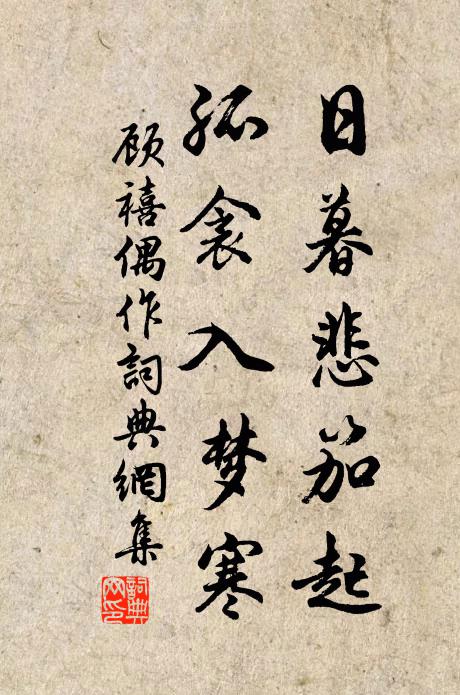 日暮悲笳起
孤衾入梦寒
顾禧偶作詞典網集
詞典
网印